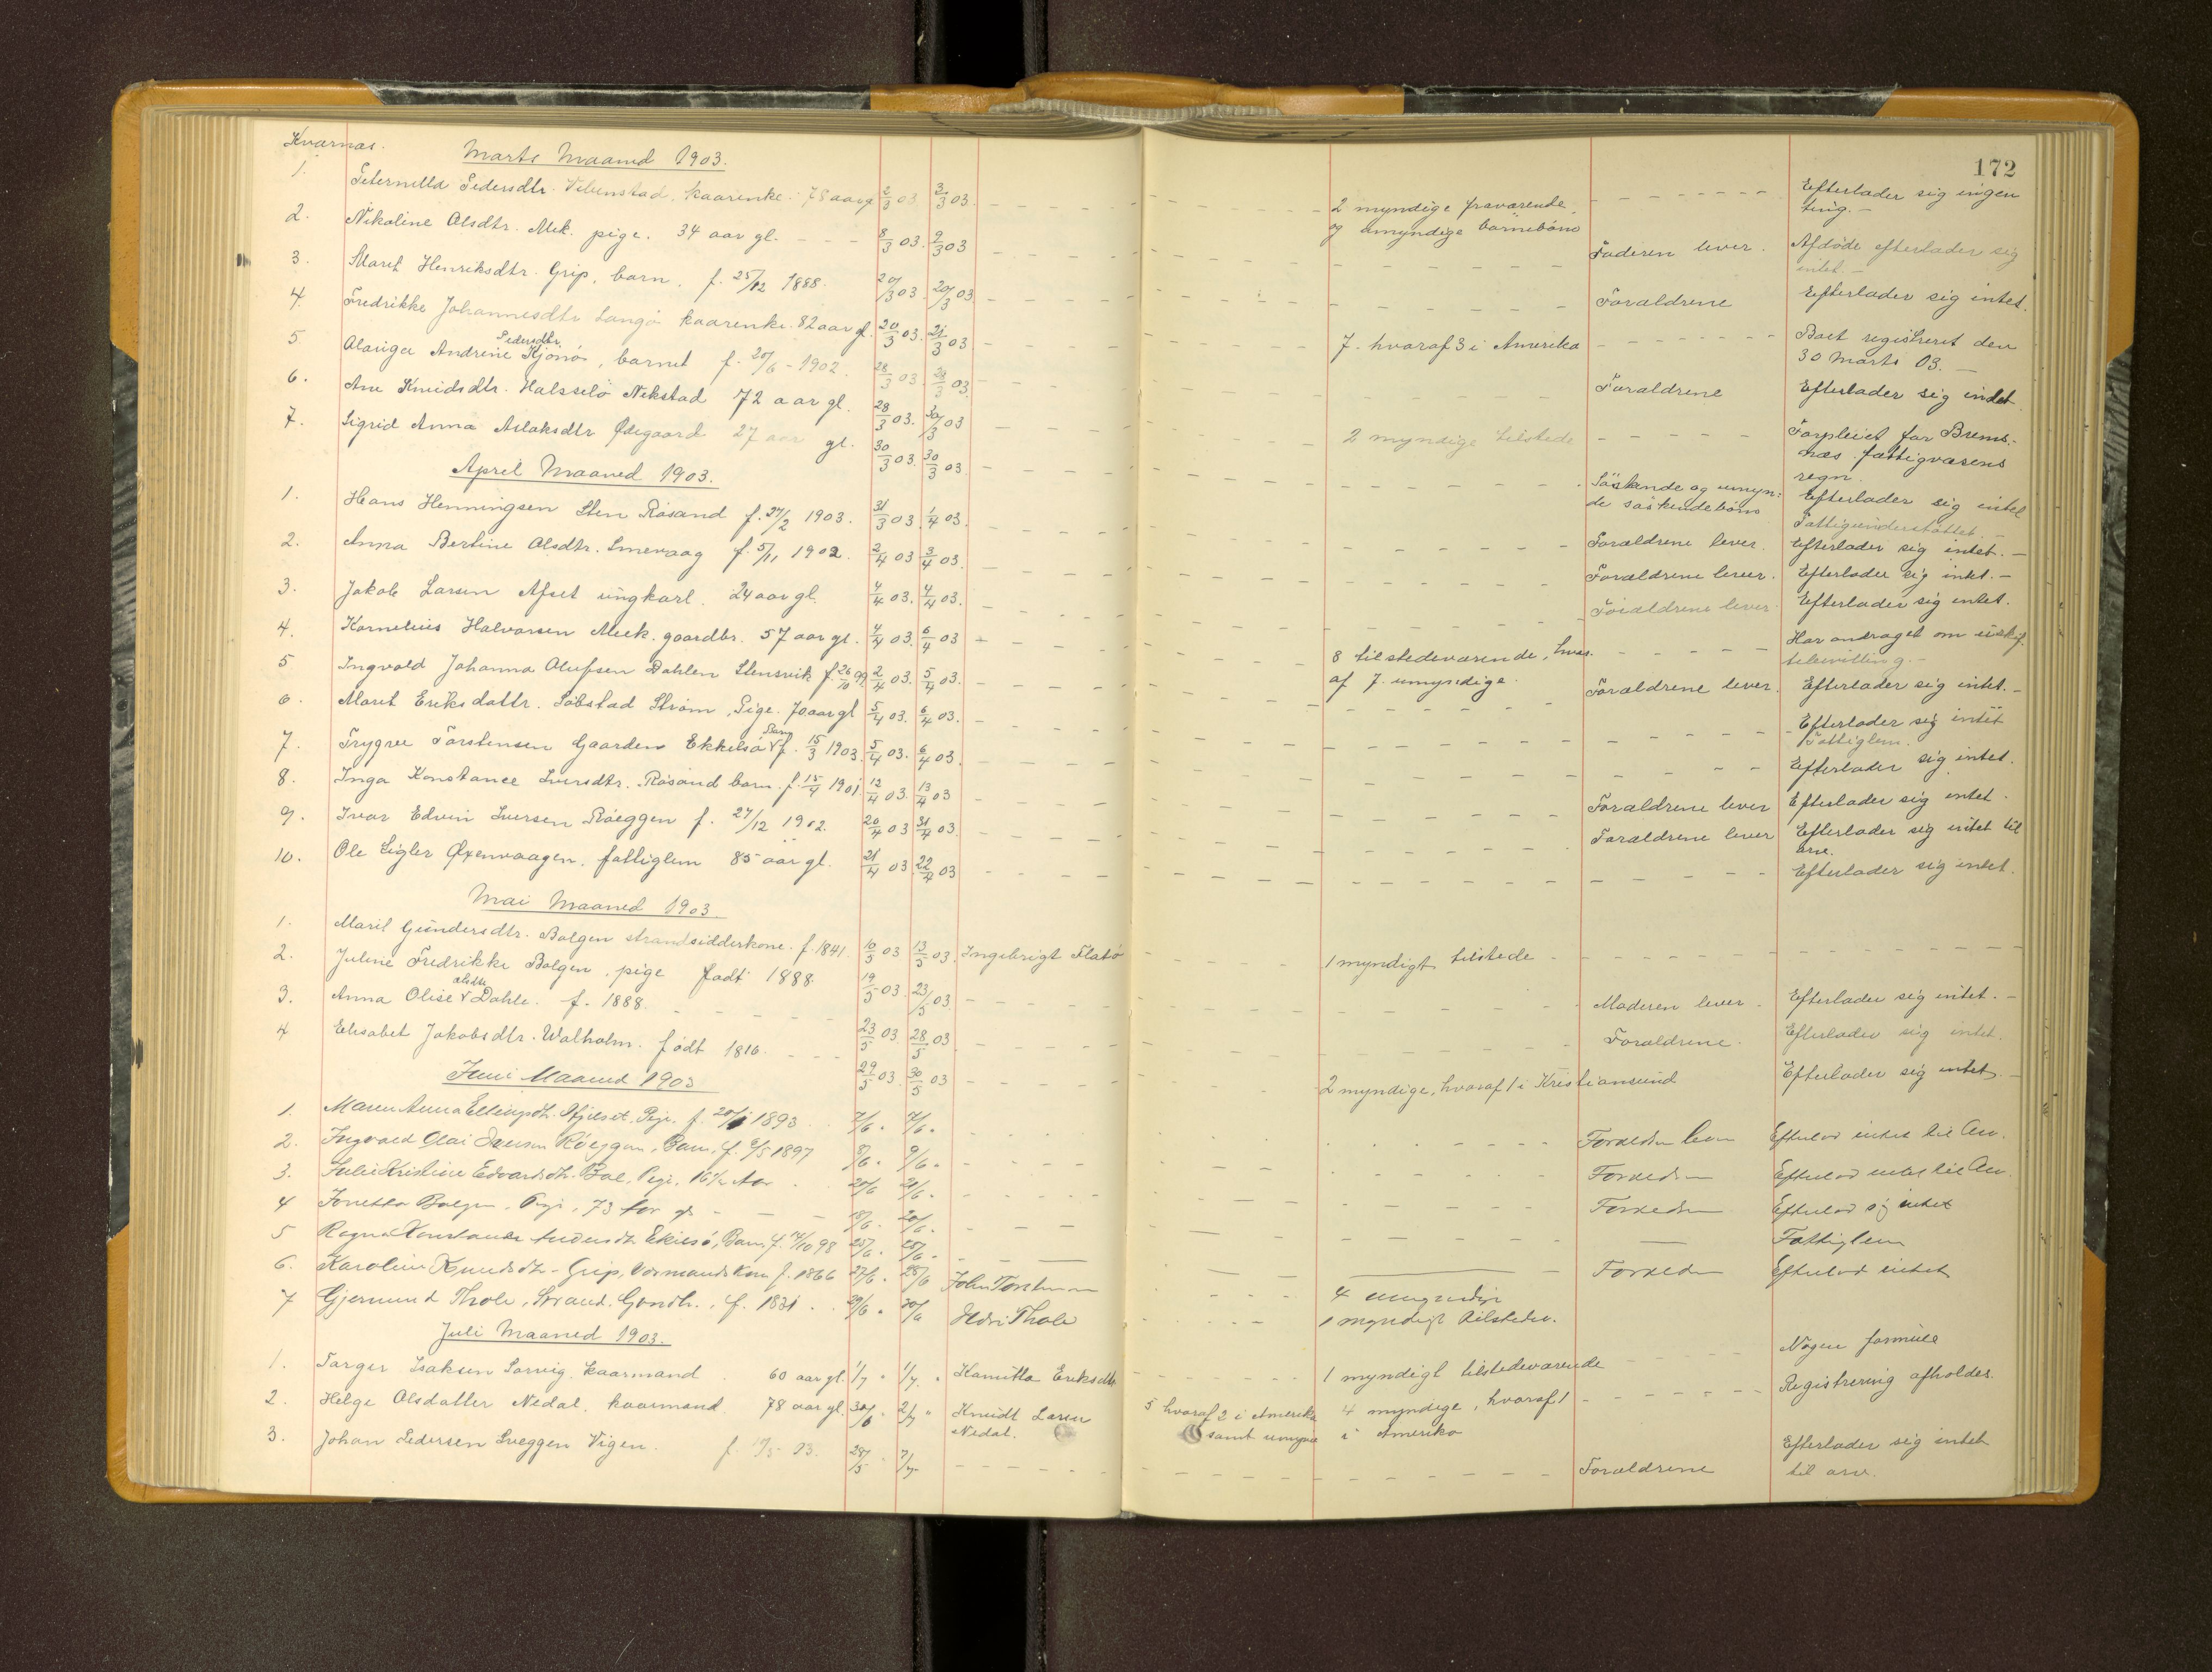 172
Kvarnæs.
Marts Maaned 1903.
1. Peternilla Pedersdtr. Vebenstad, kaarenke. 78 aar gl 2/3 03. 3/3 03. 2 myndige fraværende, og umyndige barnebørn Efterlader sig ingen ting.-
2. Nikoline Olsdtr. Mek. pige. 34 aar gl. 8/3 03. 9/3 03 Faderen lever. Afdøde efterlader sig intet.-
3. Marit Henriksdtr. Grip, barn. f. 25/12 1888. 20/3 03. 20/3 03. Forældrene Efterlader sig intet.
4. Fredrikke Johannesdtr Langö kaarenke. 82 aar gl. 20/3 03. 21/3 03. 7. hvoraf 3 i Amerika Boet registreret den 30 Marts 03.-
5 Andrine Pedersdtr. Kjönö, barnet f. 20/6 - 1902. 28/3 03. 28/3 03. Forældrene Efterlader sig indet
6. Ane Knudsdtr. Halsselö Nekstad 72 aar gl. 28/3 03. 30/3 03 2 myndige tilstede Forpleiet for Brems- næs fattigvæsens regn.
7. Sigrid Anna Aslaksdtr Ødegaard 27 aar gl. 30/3 03. 30/3 03. Söskende og umyn- de söskendebörn Efterlader sig intet Fattigunderstöttet.-
April Maaned 1903.
1. Hans Henningsen Sten Røsand f. 27/2 1903. 31/3 03. 1/4 03. Forældrene lever. Efterlader sig intet.-
2. Anna Bertine Olsdtr. Smevaag f. 5/11 1902. 2/4 03 3/4 03. Forældrene lever. Efterlader sig intet.-
3. Jakob Larsen Afset ungkarl. 24 aar gl. 4/4 03. 4/4 03. Forældrene lever. Efterlader sig intet.
4. Kornelius Halvorsen Meek. gaardbr. 57 aar gl. 4/4 03. 6/4 03 8 tilstedeværende, hvor- af 7 umyndige. Har andraget om uskif- tebevilling.-
5 Ingvald Johanna Olufsen Dahlen Stensvik f. 26/10 99. 2/4 03. 5/4 03. Forældrene lever. Efterlader sig intet.-
6. Marit Eriksdattr. Söbstad Strøm, Pige. 70 aar gl 5/4 03. 6/4 03. Efterlader sig intet Fattiglem.
7. Trygve Torstensen Gaarden Ekkelsö Barn f. 15/3 1903. 5/4 03. 6/4 03. Efterlader sig intet.
8. Inga Konstance Iversdtr. Røsand barn. f. 15/4 1901. 12/4 03. 13/4 03 Forældrene lever Efterlader sig intet.
9. Ivar Edvin Iversen Røeggen f. 27/12 1902. 20/4 03 31/4 03. Forældrene lever Efterlader sig intet til arv.
10. Ole Sigler Øxenvaagen. fattiglem 85 aar gl. 21/4 03. 22/4 03 Efterlader sig intet.
Mai Maaned 1903.
1. Marit Gundersdtr. Bolgen strandsidderkone. f. 1841. 10/5 03 13/5 03. Ingebrigt Flatö 1 myndigt tilstede
2. Juline Fredrikke Bolgen, pige født 1888. 19/5 03. 23/5 03. Moderen lever. Efterlader sig intet.-
3. Anna Olise Olsdtr Dahle. f. 1888. 23/5 03. 28/5 03 Forældrene. Efterlader sig intet.
4 Elisabet Jakobsdtr. Walholm. født 1816. 29/5 03. 30/5 03 2 myndige, hvoraf 1 i Kristiansund Efterlader sig intet.
Juni Maaned 1903
1. Maren Anna Ellingsdtr. Pige. f. 1893 7/6. 7/6. Forældrene lever Efterlod intet til Arv.
2. Ingvald Olai Iversen Røeggen, Barn, f. 9/5 1897 8/6. 9/6. Forældrene Efterlod intet til Arv.
3. Julie Kristine Edvardsdtr. Bol, Pige, 16 1/2 Aar 20/6 21/6. Forældren Efterlod sig intet
4 Jonetta Bolgen, Pige, 73 Aar gl 18/6. 20/6. Fattiglem
5 Ragna Konstance Andersdtr Ekilsö, Barn, f. 14/10 98 25/6. 25/6. Forældren Efterlod intet
6. Karoline Knudsdtr. Grip, Vormands Kone f. 1866 27/6. 28/6 John Torstensen 4 umyndige
7 Gjermund Thole, Strand. Gaardbr., f. 1831. 29/6. 30/6 Thole 1 myndigt tilstede. Nogen formue
Juli Maaned 1903.
1. Torger Isaksen Sorvig. kaarmand 60 aar gl. 1/7. 1/7. Kamilla Eriksdtr 1 myndigt tilstedeværende Registrering afholdes.
2. Helge Olsdatter Nedal, kaarmand 78 aar gl. 30/6. 2/7 " Knudt Larsen Nedal. 5 hvoraf 2 i Amerika samt umynd 4 myndige, hvoraf 1 i Amerika
3. Johan Pedersen Sveggen Vigen. 28/5. 7/7. Forældrene Efterlader sig intet til arv.